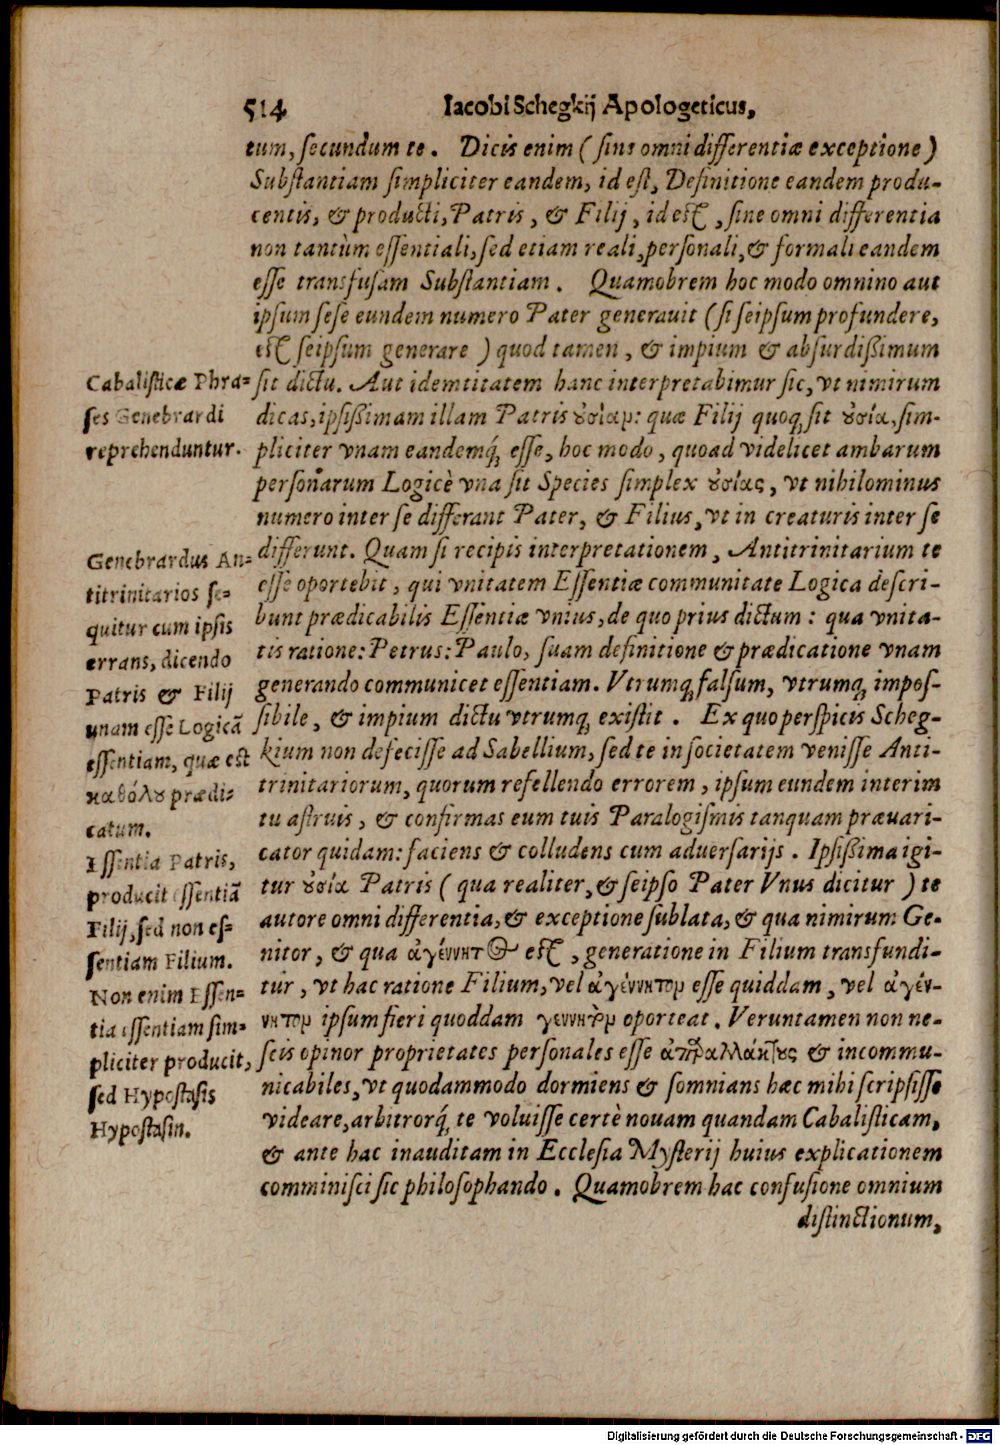 514 Iacobi Schegkij Apologeticus,
tum, ſecundum te. Dicis enim (ſine omni differentiæ exceptione)
Subſtantiam ſimpliciter eandem, id eſt, Definitione eandem produ-
centis, & producti, Patris, & Filij, id eſt, ſine omni differentia
non tantùm eſſentiali, ſed etiam reali, perſonali, & formali eandem
eſſe transfuſam Subſtantiam. Quamobrem hoc modo omnino aut
ipſum ſeſe eundem numero Pater generauit (ſi ſeipſum profundere,
eſt ſeipſum generare) quod tamen, & impium & abſurdißimum
ſit dictu. Aut idemtitatem hanc interpretabimur ſic, vt nimirum
dicas, ipſißimam illam Patris ȣσίαν: quæ Filij quoq; ſit ȣσία, ſim-
pliciter vnam eandemq́; eſſe, hoc modo, quoad videlicet ambarum
perſonarum Logicè vna ſit Species ſimplex ȣσίας, vt nihilominus
numero inter ſe differant Pater, & Filius, vt in creaturis inter ſe
differunt. Quam ſi recipis interpretationem, Antitrinitarium te
eſſe oportebit, qui vnitatem Eſſentiæ communitate Logica deſcri-
bunt prædicabilis Eſſentiæ vnius, de quo prius dictum: qua vnita-
tis ratione: Petrus: Paulo, ſuam definitione & prædicatione vnam
generando communicet eſſentiam. Vtrumq; falſum, vtrumq; impoſ-
ſibile, & impium dictu vtrumq; exiſtit. Ex quo perſpicis Scheg-
kium non defeciſſe ad Sabellium, ſed te in ſocietatem veniſſe Anti-
trinitariorum, quorum refellendo errorem, ipſum eundem interim
tu aſtruis, & confirmas eum tuis Paralogiſmis tanquam præuari-
cator quidam: faciens & colludens cum aduerſarijs. Ipſißima igi-
tur ȣσία Patris (qua realiter, & ſeipſo Pater Vnus dicitur) te
autore omni differentia, & exceptione ſublata, & qua nimirum Ge-
nitor, & qua ἀγέννητος eſt, generatione in Filium transfundi-
tur, vt hac ratione Filium, vel ἀγέννητον eſſe quiddam, vel ἀγέν-
νητον ipſum fieri quoddam γεννητὸν oporteat. Veruntamen non ne-
ſcis opinor proprietates perſonales eſſe ἀπαραλλάκτȣς & incommu-
nicabiles, vt quodammodo dormiens & ſomnians hæc mihi ſcripſiſſe
videare, arbitrorq́; te voluiſſe certè nouam quandam Cabaliſticam,
& ante hac inauditam in Eccleſia Myſterij huius explicationem
comminiſci ſic philoſophando. Quamobrem hac confuſione omnium
diſtinctionum,
Cabaliſticæ Phra-
ſes Genebrardi
reprehenduntur.
Genebrardus An-
titrinitarios ſe-
quitur cum ipſis
errans, dicendo
Patris & Filij
unam eſſe Logicā
eſſentiam, quæ est
καθόλȣ prædi-
catum.
Eſſentia Patris,
producit eſſentiā
Filij, ſed non eſ-
ſentiam Filium.
Non enim Eſſen-
tia eſſentiam ſim-
pliciter producit,
ſed Hypoſtaſis
Hypoſtaſin.
Digitalisierung gefördert durch die Deutsche Forschungsgemeinschaft - DFG